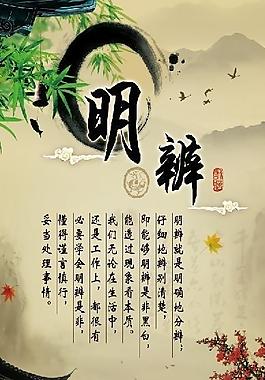 明辨
明辨就是明确地分辨；
仔细地辨别清楚，
即能够明辨是非黑白，
能透过现象看本质。
我们无论在生活中，
还是工作上，都很有
必要学会明辨是非，
懂得谨言慎行，
妥当处理事情。